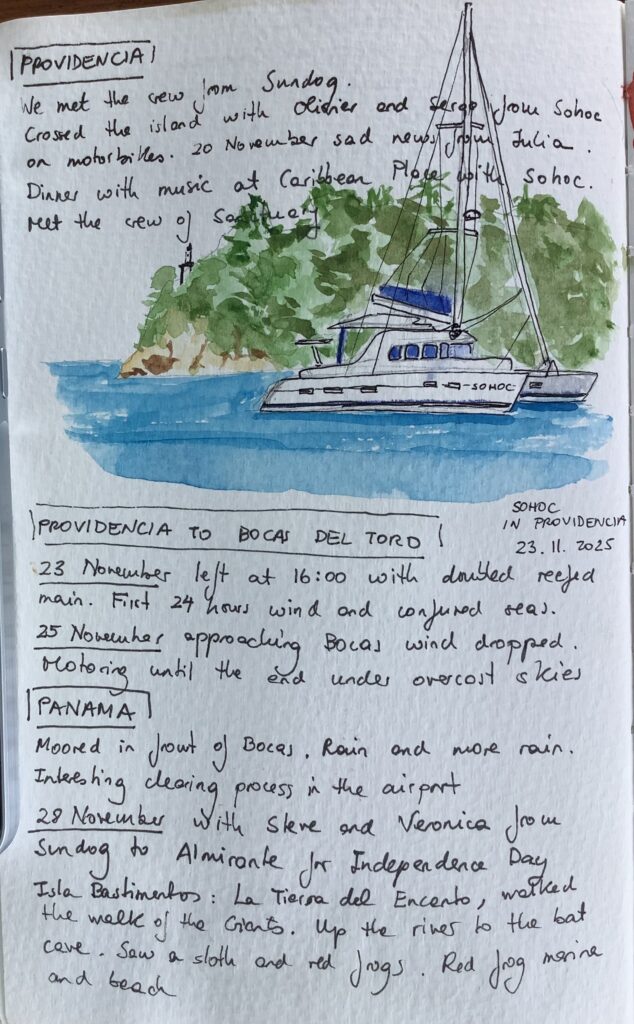 PROVIDENCIA
We met the crew from Sundog.
Crossed the island with Olivier and Serge from Sohoc
on motorbikes. 20 November sad news from Julia.
Dinner with music at Caribbean Place with Sohoc.
Met the crew of Sanctuary
SOHOC
SOHOC
IN PROVIDENCIA
23.11.2025
PROVIDENCIA TO BOCAS DEL TORO
23 November left at 16:00 with doubled reefed
main. First 24 hours wind and confused seas.
25 November approaching Bocas wind dropped.
Motoring until the end under overcast skies
PANAMA
Moored in front of Bocas. Rain and more rain.
Interesting clearing process in the airport
28 November with Steve and Veronica from
Sundog to Almirante for Independence Day
Isla Bastimentos: La Tierra del Encanto, walked
the walk of the Giants. Up the river to the bat
cave. Saw a sloth and red frogs. Red frog marina
and beach